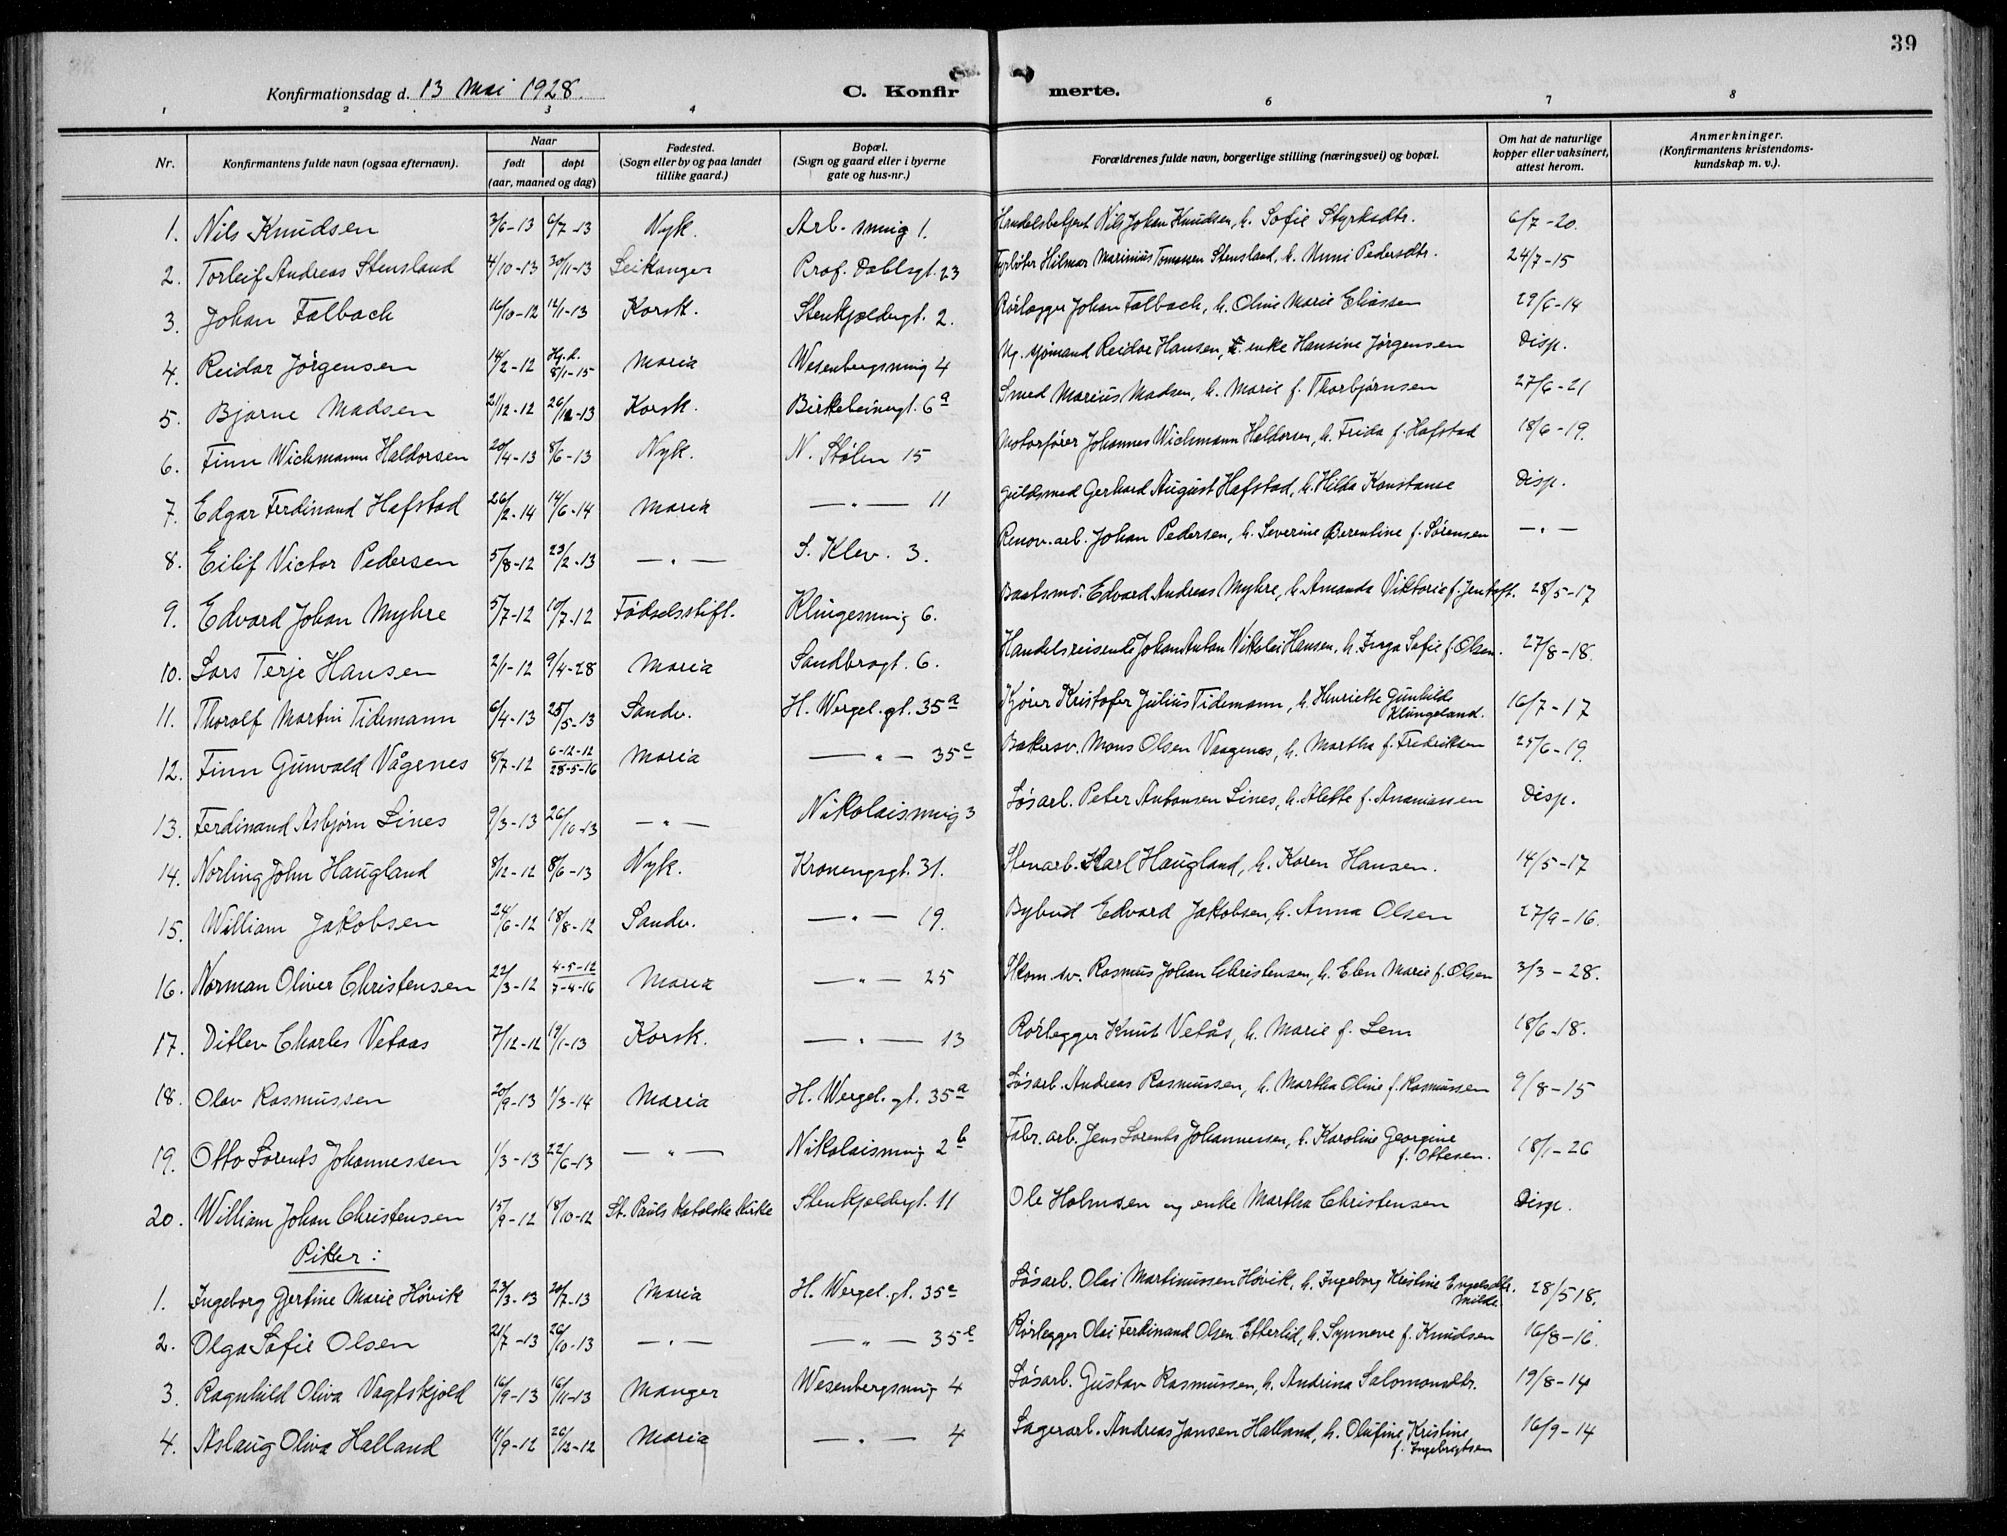 39
Konfirmationsdag d. 13 Mai 1928. C. Konfirmerte.
1 2 3 4 6 7 8
Nr. Konfirmantens fulde navn (ogsaa efternavn). Naar født døpt (aar, maaned og dag) Fødested. (Sogn eller by og paa landet tillike gaard.) Bopæl. (Sogn og gaard eller i byerne gate og hus-nr.) Forældrenes fulde navn, borgerlige stilling (næringsvei) og bopæl. Om hat de naturlige kopper eller vaksinert, attest herom. Anmerkninger. (Konfirmantens kristendomskundskap m. v.).
1. Nils Knudsen 3/6-13 6/7-13 Nyk. Arb. smug 1. Handelsbetjent Nils Johan Knudsen, h. Sofie Styrksdtr. 6/7-20.
2. Torleif Andreas Stensland 4/10-13 30/11-13 Leikanger Prof. Dahlsgt. 23 Fyrbøter Hilmar Marinius Tomassen Stensland, h. Unni Pedersdtr. 24/7-15
3. Johan Falbach 16/10-12 12/1-13 Korsk. Stenkjeldergt. 2. Rørlægger Johan Falbach, h. Oline Marie Eliassen 29/6-14
4. Reidar Jørgensen 14/2-12 Hj.d. 8/1-15 Maria Wesenbergsmug 4 Ug. sjømand Reidar Hansen, enke Hansine Jørgensen Disp.
5. Bjarne Madsen 21/12-12 26/12-13 Korsk. Birkebeinergt. 6a Smed Marius Madsen, h. Marie f. Thorbjørnsen 27/6-21
6. Finn Wichmann Haldorsen 20/4-13 8/6-13 Nyk. N. Stølen 15 Motorfører Johannes Wichmann Haldorsen, h. Frida f. Hafstad 18/6-19.
7. Edgar Ferdinand Hafstad 26/2-14 14/6-14 Maria — " — 11 Guldsmed Gerhard August Hafstad, h. Hilda Konstanse Disp.
8. Eilif Victor Pedersen 5/8-12 23/2-13 — " — S. Klev. 3. Renov. arb. Johan Pedersen, h. Severine Berentine f. Sørensen — " —
9. Edvard Johan Myhre 5/7-12 10/7-12 Fødselsstift. Klingesmug 6. Baatsmd. Edvard Andreas Myhre, h. Amanda Viktorie f. Jentoft. 28/5-17
10. Lars Terje Hansen 2/1-12 9/4-28 Maria Sandbrogt. 6. Handelsreisende Johan Anton Nikolai Hansen, h. Inga Sofie f. Olsen. 27/8-18.
11. Thoralf Martin Tidemann 6/4-13 25/5-13 Sandv. H. Wergel. gt. 35a Kjører Kristofer Julius Tidemann, h. Henriette Gunhilde Klungeland. 16/7-17
12. Finn Gunvald Vågenes 8/7-12 6-12-12 28-5-16 Maria — " — 35c Bakersv. Mons Olsen Vaagenes, h. Martha f. Fredriksen 25/6-19.
13. Ferdinand Asbjørn Lines 9/3-13 26/10-13 — " — Nikolaismug 3 Løsarb. Peter Antonsen Lines, h. Alette f. Ananiassen Disp.
14. Norling John Haugland 8/12-12 8/6-13 Nyk. Kronengsgt. 31. Stenarb. Karl Haugland, h. Karen Hansen. 14/5-17
15. William Jakobsen 24/6-12 18/8-12 Sandv. — " — 19. Bybud Edvard Jakobsen, h. Anna Olsen 27/9-16.
16. Norman Oliver Christensen 22/3-12 4-5-12 7-4-16 Maria — " — 25 Skom. sv. Rasmus Johan Christensen, h. Elen Marie f. Olsen 3/3-28.
17. Ditlev Charles Vetaas 7/12-12 19/1-13 Korsk. — " — 13 Rørlegger Knut Vetås, h. Marie f. Lem 18/6-18.
18. Olav Rasmussen 20/9-13 1/3-14 Maria H. Wergel. gt. 35a Løsarb. Andreas Rasmussen, h. Martha Oline f. Rasmussen 9/8-15
19. Otto Lorents Johannessen 1/3-13 22/6-13 — " — Nikolaismug 2b Fabr. arb. Jens Lorents Johannessen, h. Karoline Georgine f. Ottesen. 18/1-26
20. William Johan Christensen 15/9-12 18/10-12 St. Pauls Katolske Kirke Stenkjeldergt. 11 Ole Holmsen og enke Martha Christensen Disp.
Piker:
1. Ingeborg Gjertine Marie Høvik 23/3-13 20/7-13 Maria H. Wergel. gt. 35c Løsarb. Olai Martinussen Høvik, h. Ingeborg Kristine Engelsdtr. Milde. 28/5 18.
2. Olga Sofie Olsen 21/7-13 26/10-13 — " — — " — 35e Rørlegger Olai Ferdinand Olsen Etterlid, h. Synneve f. Knudsen 16/8-16.
3. Ragnhild Oliva Vagtskjold 16/9-13 16/11-13 Manger Wesenbergsmug 4 Løsarb. Gustav Rasmussen, h. Andrina Salomonsdtr. 19/8-14
4. Aslaug Oliva Halland 11/9-12 26/12-12 Maria — " — 4 Lagerarb. Andreas Jansen Halland, h. Olufine Kristine f. Ingebregtsen 16/9-14